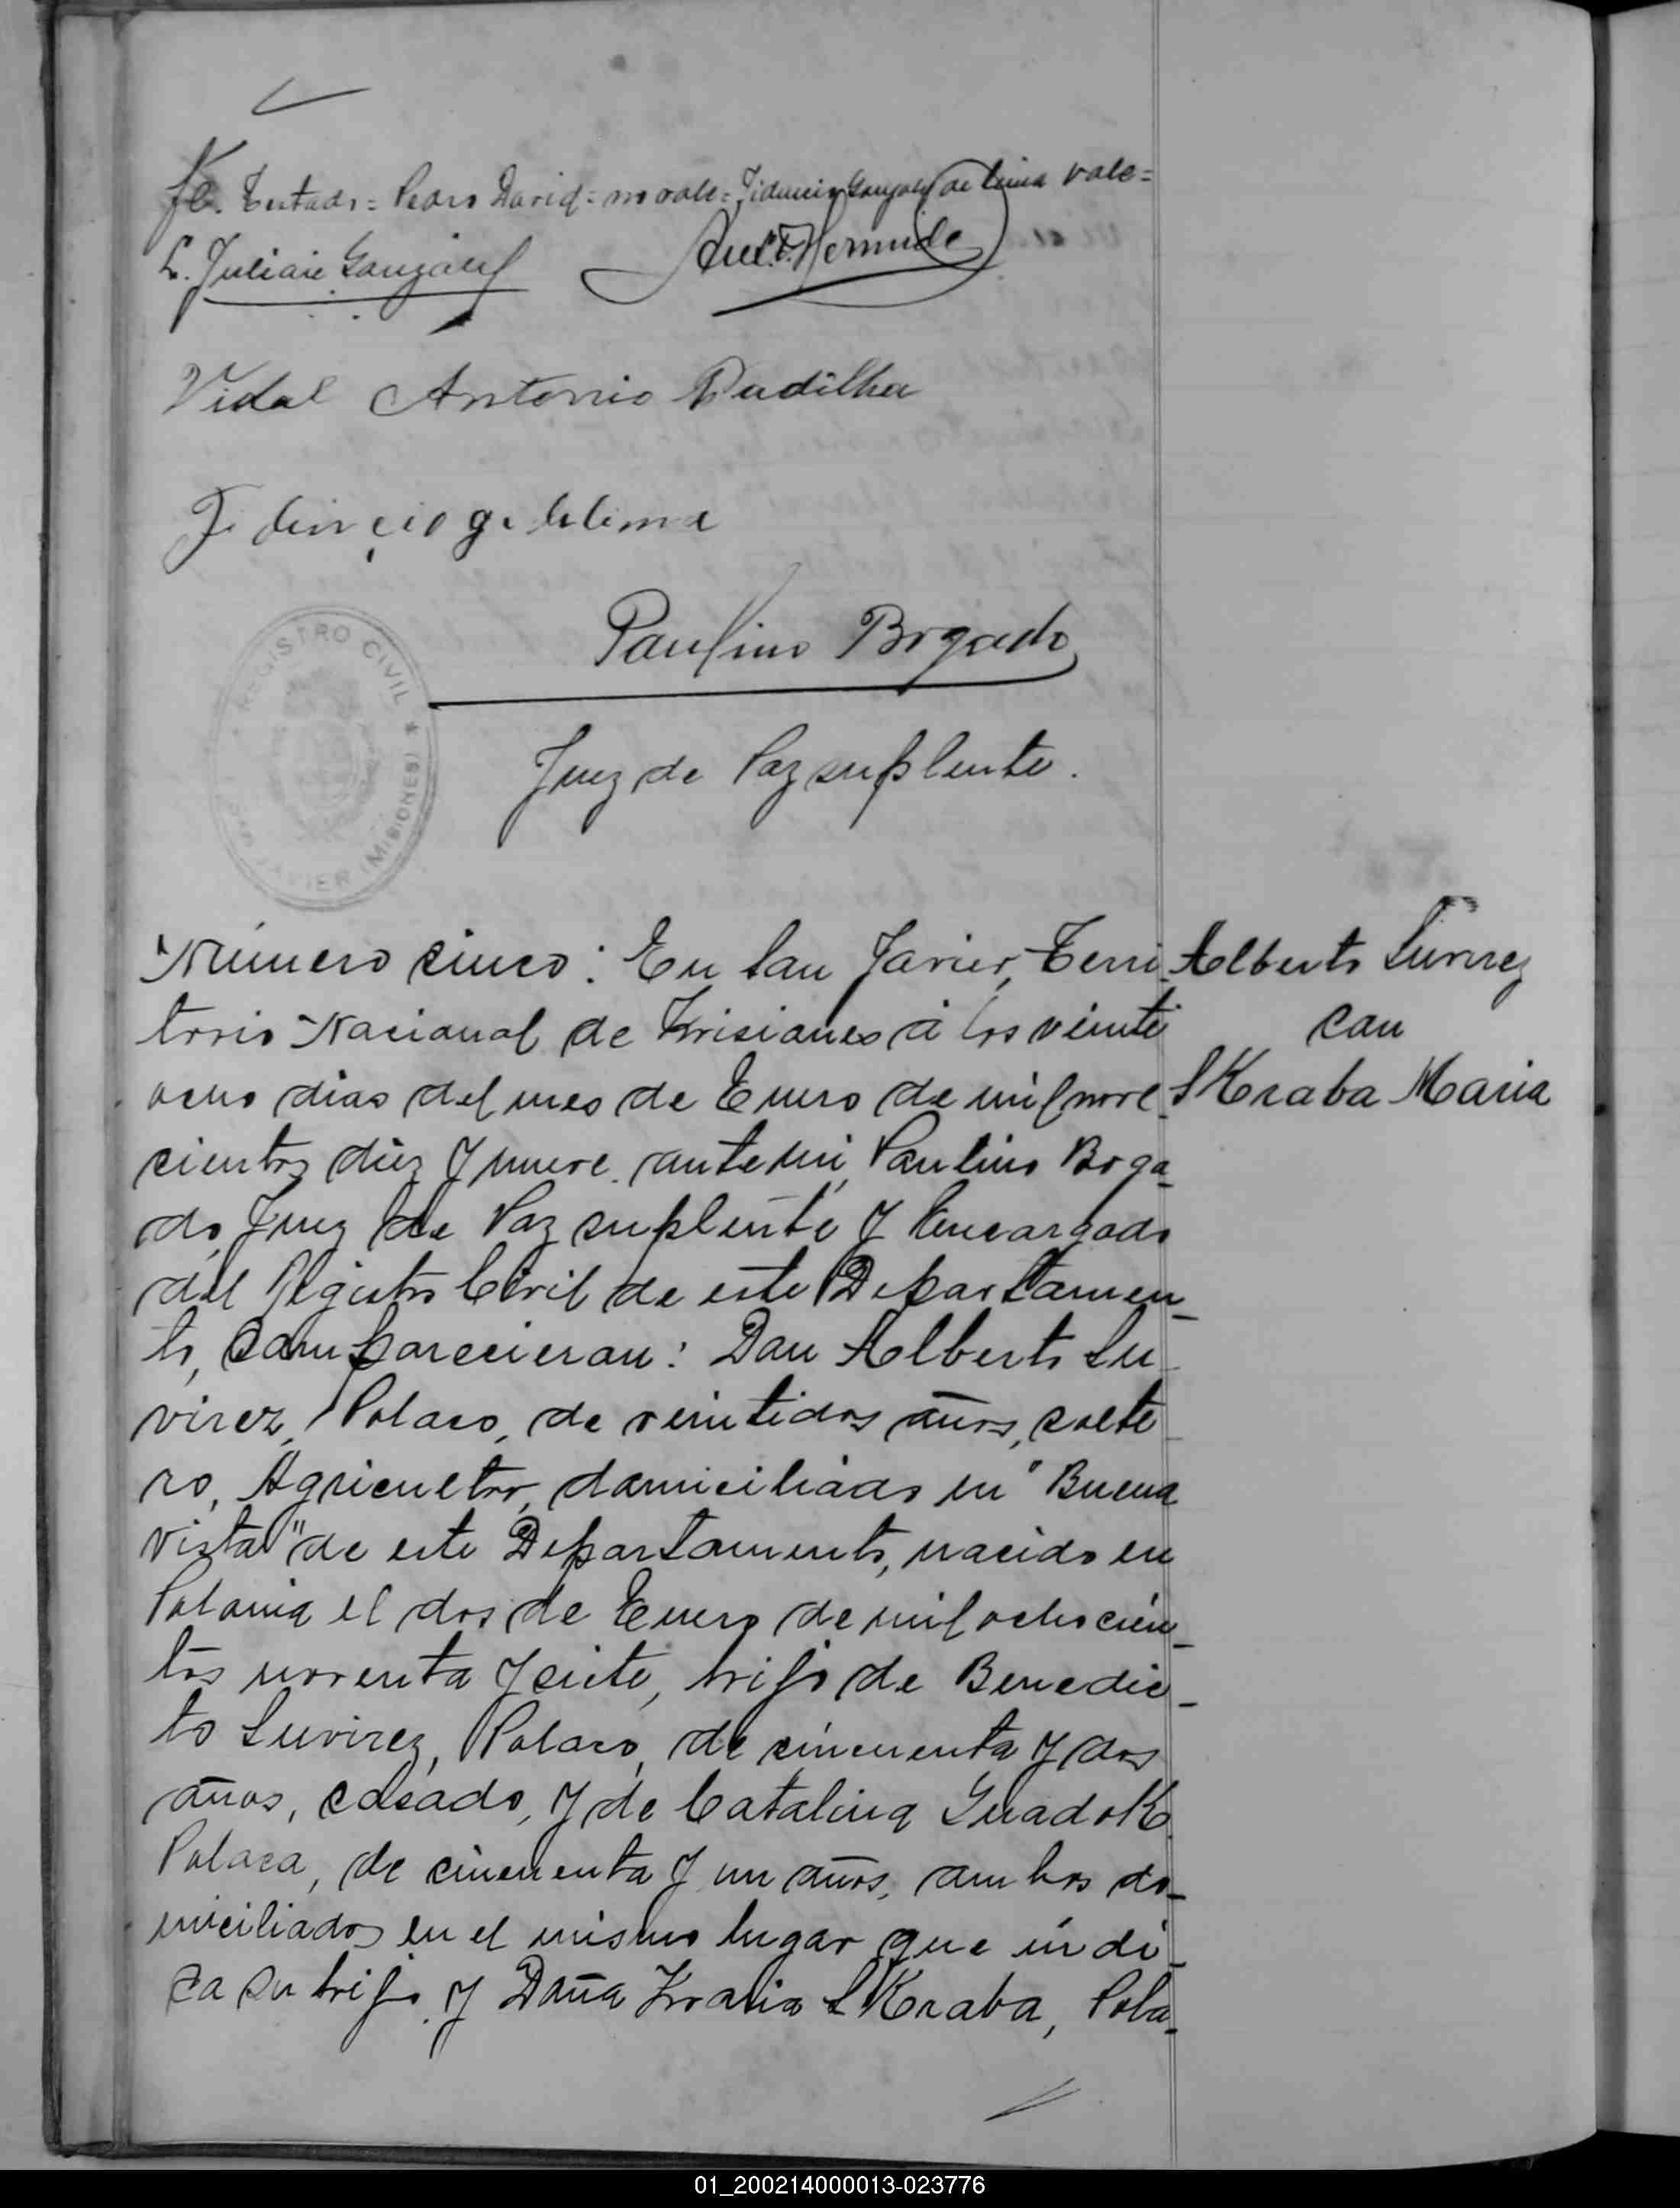 fe. Testado = Pedro David = no vale = Fidencio Gonzalez de Lima vale =
L. Julian González
Vidal Antonio Padilha
Paulino Bogado
REGISTRO CIVIL
SAN JAVIER (MISIONES)
Juez de Paz suplente.
Número cinco: En San Javier, Terri-
torio Nacional de Misiones á los veinte
ocho dias del mes de Enero de mil nove-
cientos diez y nueve. ante mi, Paulino Boga-
do, Juez de Paz suplente y Encargado
del Registro Civil de este Departamen-
to, Comparecieron: Don Alberto Su-
virez, Polaco, de veintidos años, solte-
ro, Agricultor, domiciliado en "Buena
Vista" de este Departamento, nacido en
Polonia el dos de Enero de mil ochocien-
tos noventa y siete, hijo de Benedic-
to Suvirez, Polaco, de cincuenta y dos
años, casado, y de Catalina GuadoK
Polaca, de cincuenta y un años, ambos do-
miciliados en el mismo lugar que indi-
ca su hijo. y Doña Maria SKraba, Pola-
Alberto Suvirez
con
SKraba Maria
01_200214000013-023776